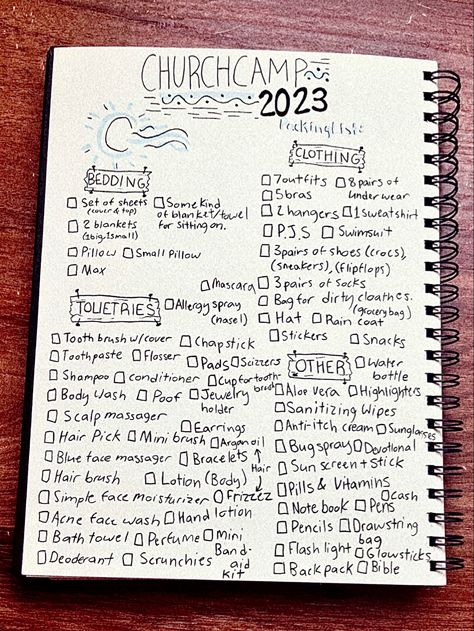 CHURCHCAMP
2023
Packinglist:
BEDDING
Set of sheets
(cover & top)
Some kind
of blanket/towel
for sitting on.
2 blankets
(1big, 1small)
Pillow
Small pillow
Max
TOLIETRIES
Mascara
Allergy spray
(nasel)
Tooth brush w/cover
Chapstick
Toothpaste
Flosser
Pads
Scizzers
Shampoo
conditioner
Cup for tooth-
brush
Body Wash
Poof
Jewelry
holder
Scalp massager
Earrings
Hair Pick
Mini brush
Argan oil
Blue face massager
Bracelets
Hair
Hair brush
Lotion (Body)
Simple face moisturizer
Frizzez
Acne face wash
Hand lotion
Bath towel
Perfume
Mini
Band-
aid
kit
Deodorant
Scrunchies
CLOTHING
7 outfits
8 pairs of
underwear
5 bras
2 hangers
1 sweatshirt
P.J.S
Swimsuit
3 pairs of shoes (crocs),
(sneakers), (flipflops)
3 pairs of socks
Bag for dirty cloathes.
(grocery bag)
Hat
Rain coat
Stickers
Snacks
OTHER
Water
bottle
Aloe vera
Highlighters
Sanitizing Wipes
Anti-itch cream
Sunglasses
Bug spray
Devotional
Sun screen + stick
Pills & Vitamins
Cash
Note book
Pens
Pencils
Drawstring
bag
Flash light
Glowsticks
Backpack
Bible